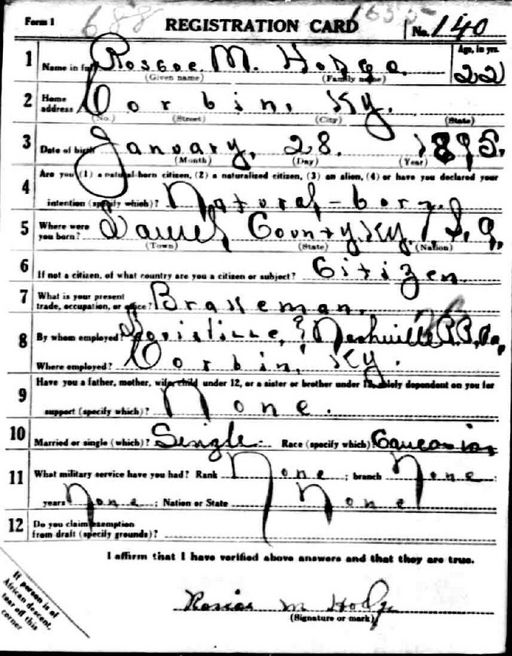 Form 1 688 REGISTRATION CARD No. 140
1 Name in full Roscoe M. Hodge Age, in yrs. 22
(Given name) (Family name)
2 Home address Corbin, Ky.
(No.) (Street) (City) (State)
3 Date of birth January, 28. 1895.
(Month) (Day) (Year)
4 Are you (1) a natural-born citizen, (2) a naturalized citizen, (3) an alien, (4) or have you declared your
intention (specify which)? Natural-born.
5 Where were you born? Laurel County Ky. U.S.A.
(Town) (State) (Nation)
6 If not a citizen, of what country are you a citizen or subject? Citizen.
7 What is your present trade, occupation, or office? Brakeman.
8 By whom employed? Louisville, & Nashville R.R. Co,
Where employed? Corbin, Ky.
9 Have you a father, mother, wife, child under 12, or a sister or brother under 12, solely dependent on you for
support (specify which)? None.
10 Married or single (which)? Single. Race (specify which)? Caucasian
11 What military service have you had? Rank None ; branch None ;
years None ; Nation or State None
12 Do you claim exemption from draft (specify grounds)?
I affirm that I have verified above answers and that they are true.
Roscoe M Hodge
(Signature or mark)
If person is of
African descent,
tear off this
corner